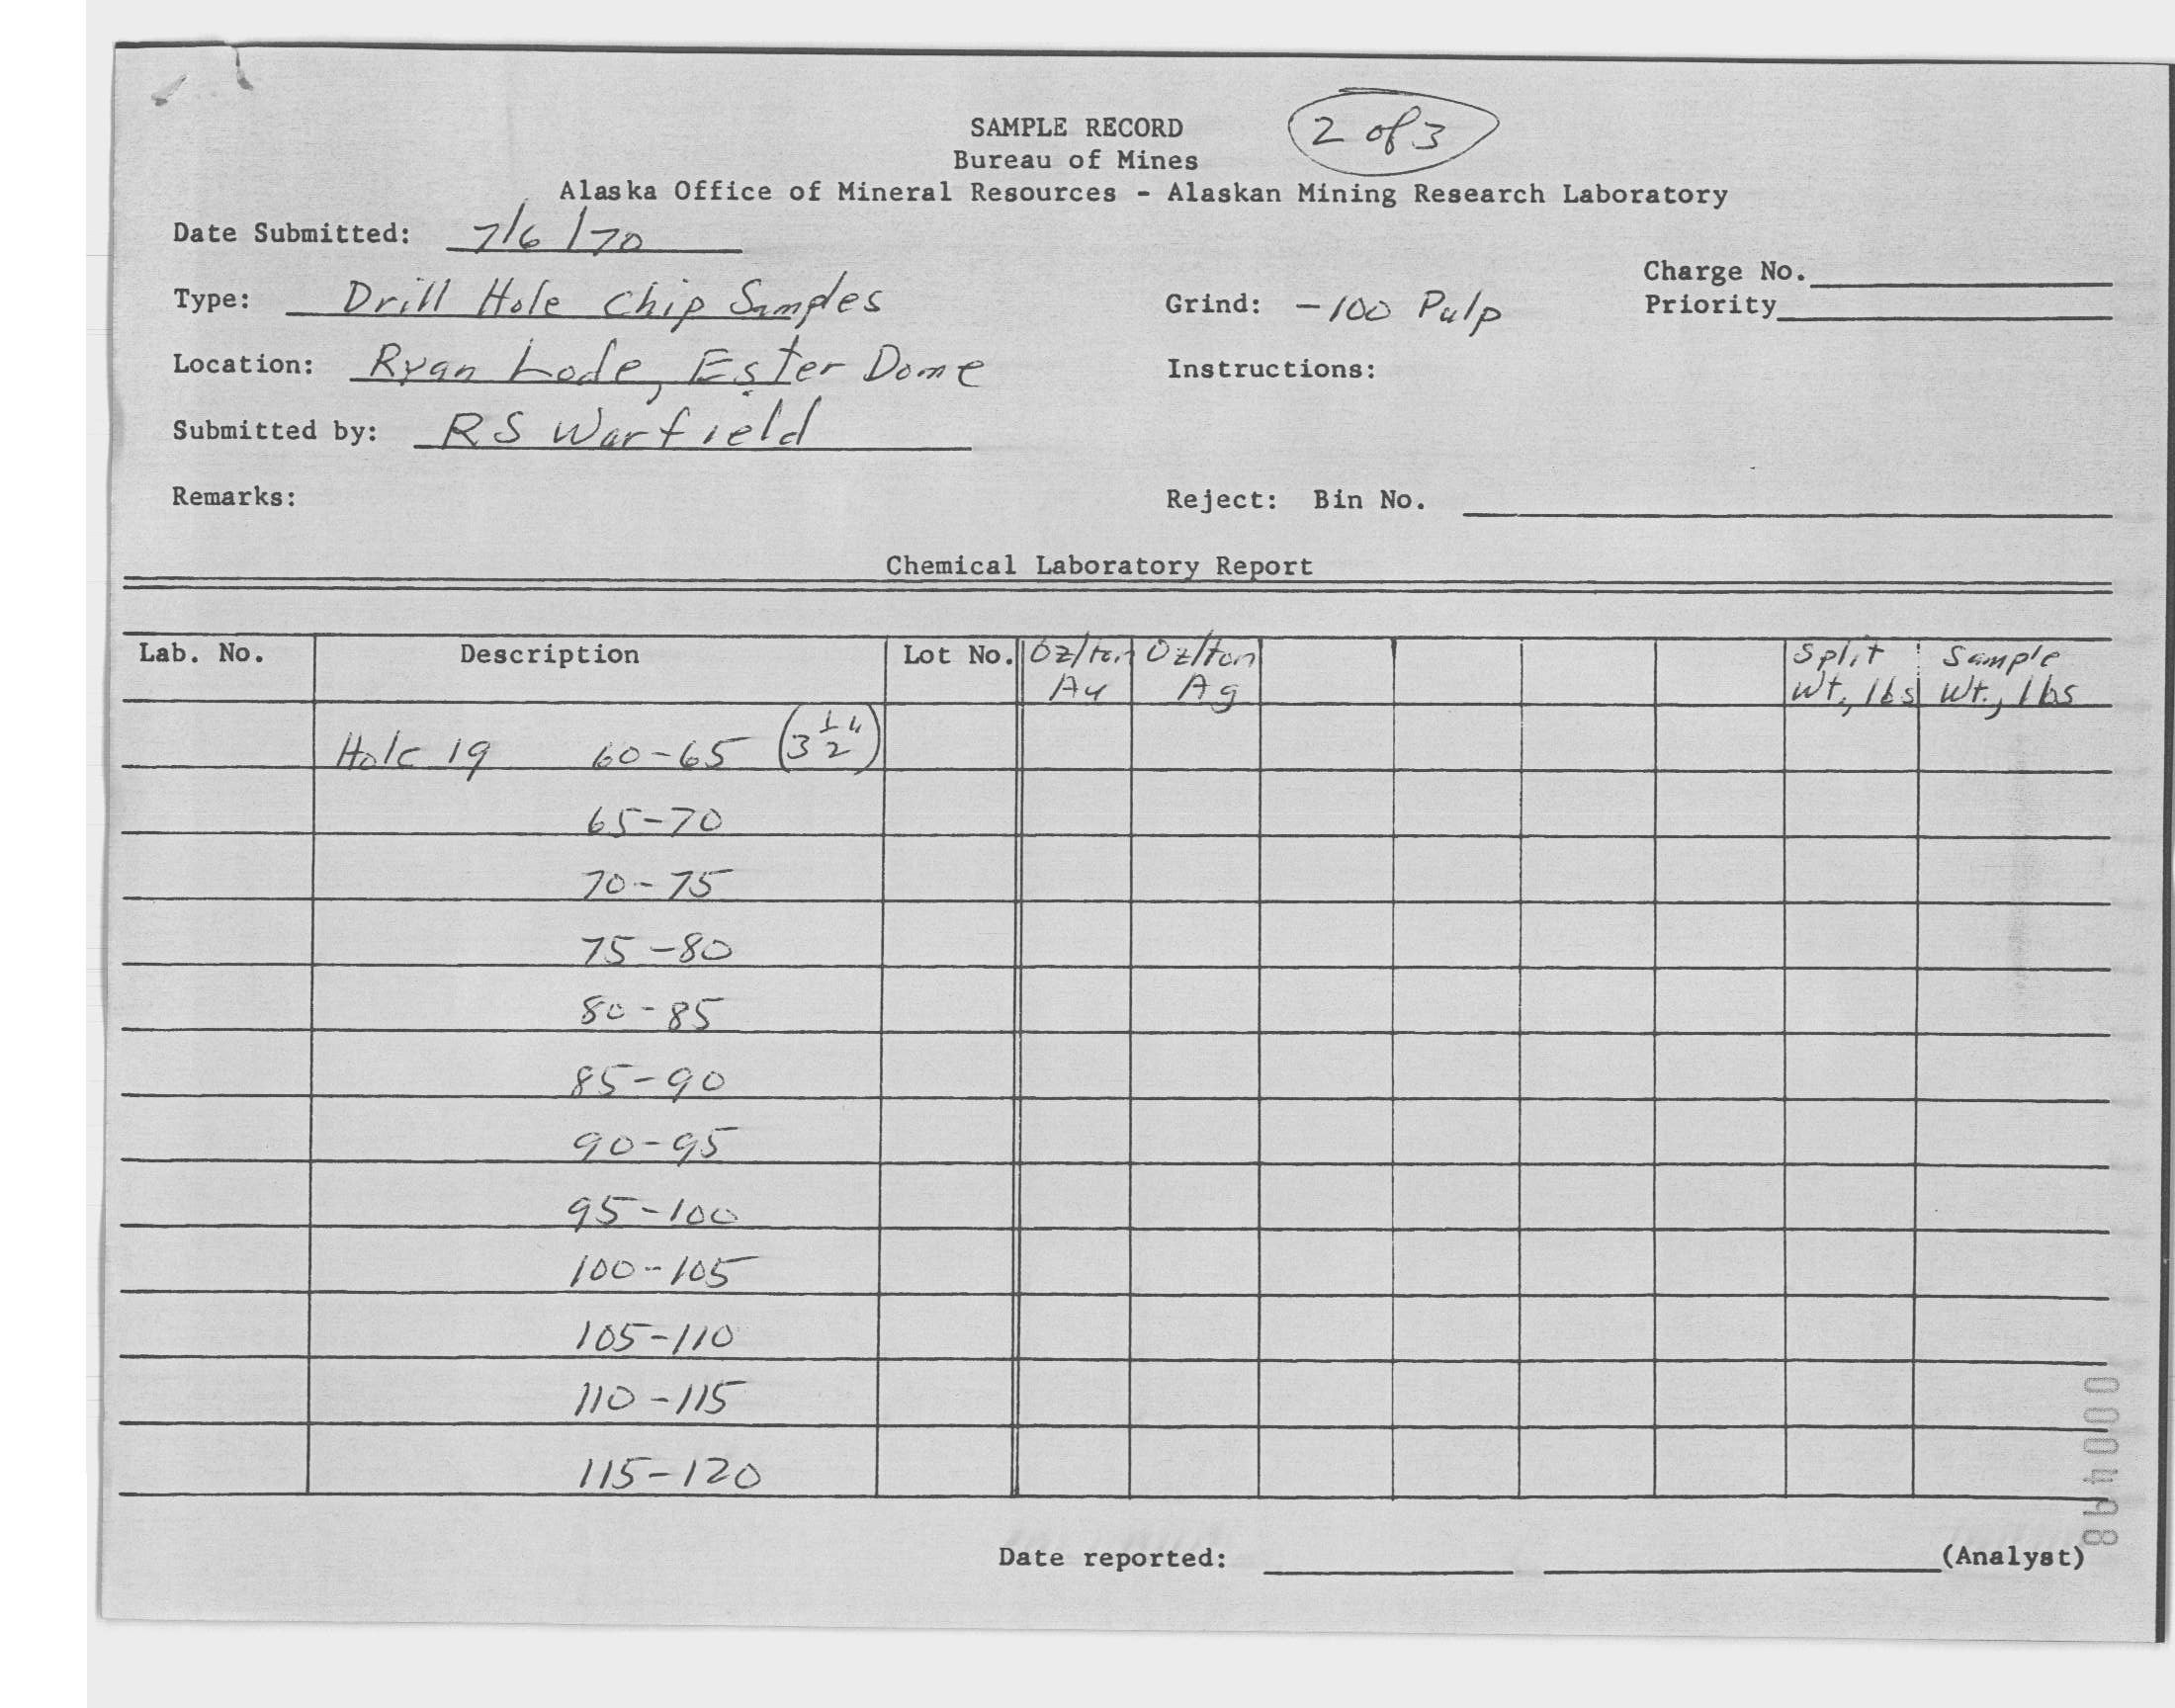 SAMPLE RECORD
2 of 3
Bureau of Mines
Alaska Office of Mineral Resources - Alaskan Mining Research Laboratory
Date Submitted: 7/6/70
Charge No.
Type: Drill Hole Chip Samples Grind: -100 Pulp Priority
Location: Ryan Lode, Ester Dome Instructions:
Submitted by: RS Warfield
Remarks: Reject: Bin No.
Chemical Laboratory Report
Lab. No. Description Lot No. Oz/ton Au Oz/ton Ag Split Wt., lbs Sample Wt., lbs
Hole 19 60-65 (3 1/2")
65-70
70-75
75-80
80-85
85-90
90-95
95-100
100-105
105-110
110-115
115-120
Date reported: (Analyst)
000498